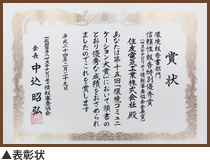 賞状
環境報告書部門
信頼性報告特別優秀賞
住友電気工業株式会社 殿
あなたは第十五回「環境コミュニ
ケーション大賞」において頭書の
とおり優秀な成績をおさめられ
ましたのでこれを賞します
平成二十四年二月二十九日
会長 中込 昭弘
▲表彰状